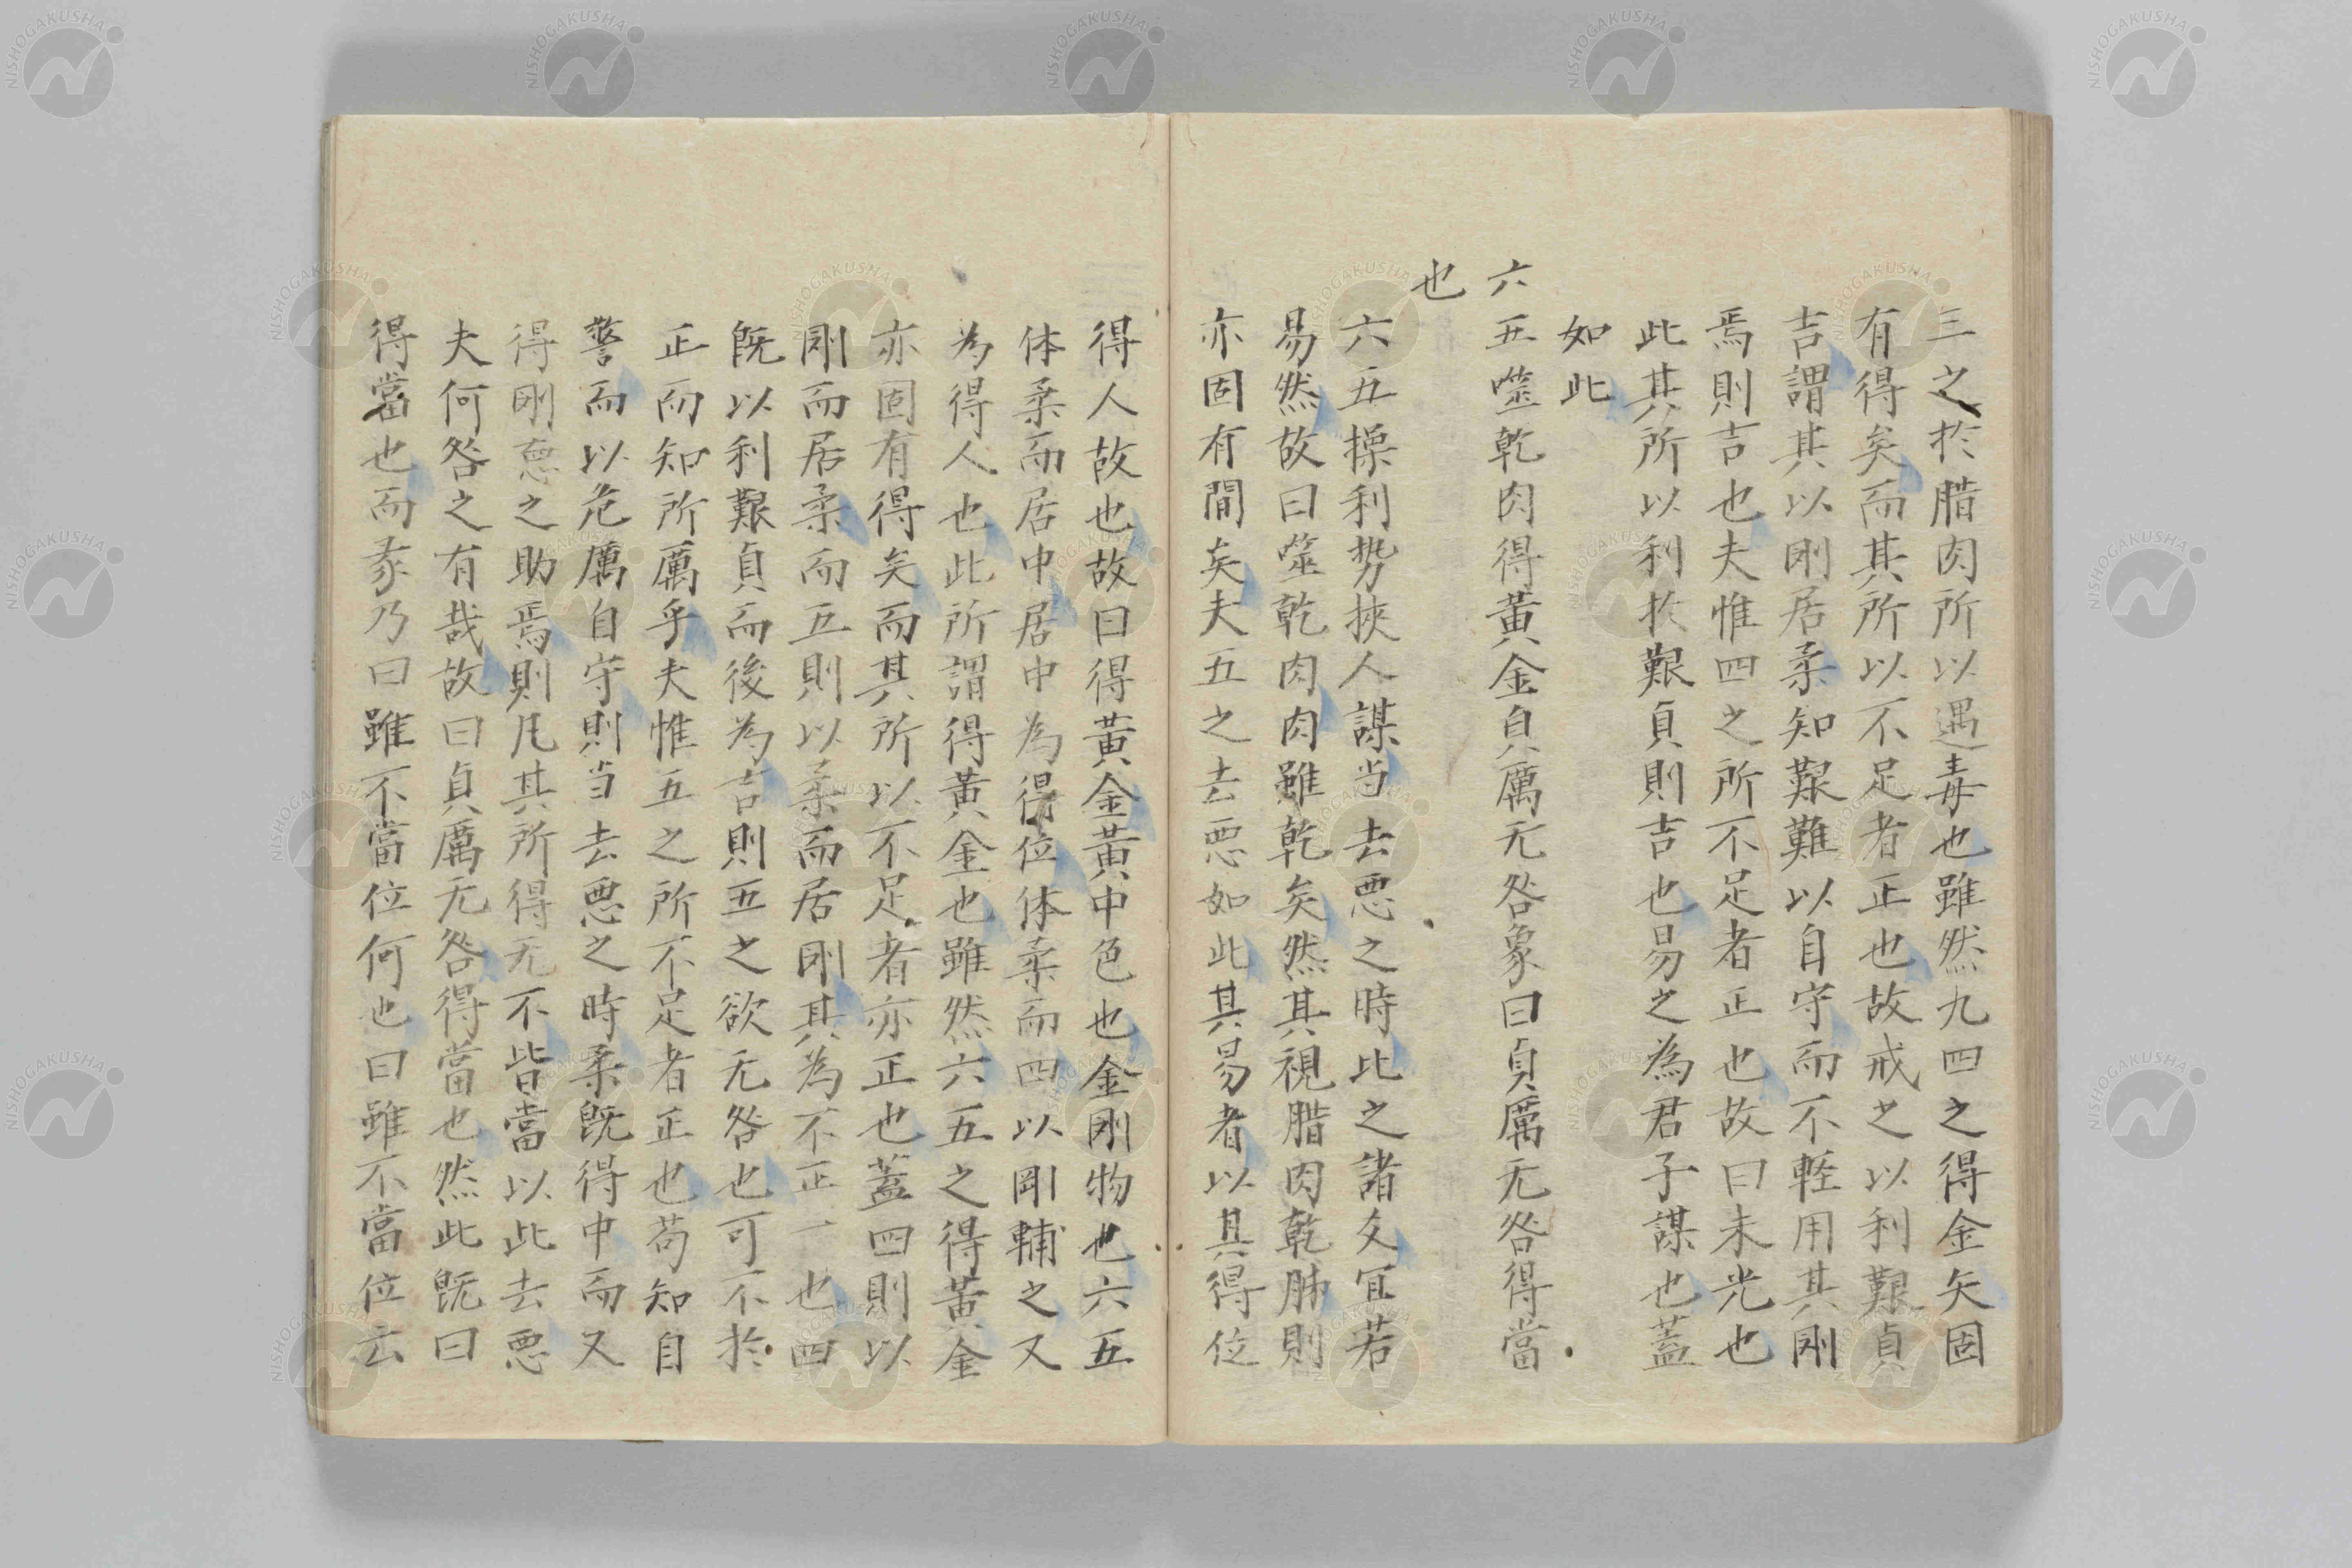 三之於腊肉所以遇毒也雖然九四之得金矢固
有得矣而其所以不足者正也故戒之以利艱貞
吉謂其以剛居柔知艱難以自守而不輕用其剛
焉則吉也夫惟四之所不足者正也故曰未光也
此其所以利於艱貞則吉也易之為君子謀也蓋
如此
六五噬乾肉得黃金貞厲无咎象曰貞厲无咎得當
也
六五操利势挾人謀当去悪之時比之諸爻宜若
易然故曰噬乾肉肉雖乾矣然其視腊肉乾胏則
亦固有間矣夫五之去悪如此其易者以其得位
得人故也故曰得黃金黃中色也金剛物也六五
体柔而居中居中為得位体柔而四以剛輔之又
為得人也此所謂得黃金也雖然六五之得黃金
亦固有得矣而其所以不足者亦正也蓋四則以
剛而居柔而五則以柔而居剛其為不正一也四
既以利艱貞而後為吉則五之欲无咎也可不於
正而知所厲乎夫惟五之所不足者正也苟知自
警而以危厲自守則当去悪之時柔既得中而又
得剛悳之助焉則凡其所得无不皆當以此去悪
夫何咎之有哉故曰貞厲无咎得當也然此既曰
得當也而彖乃曰雖不當位何也曰雖不當位云
NISHOGAKUSHA